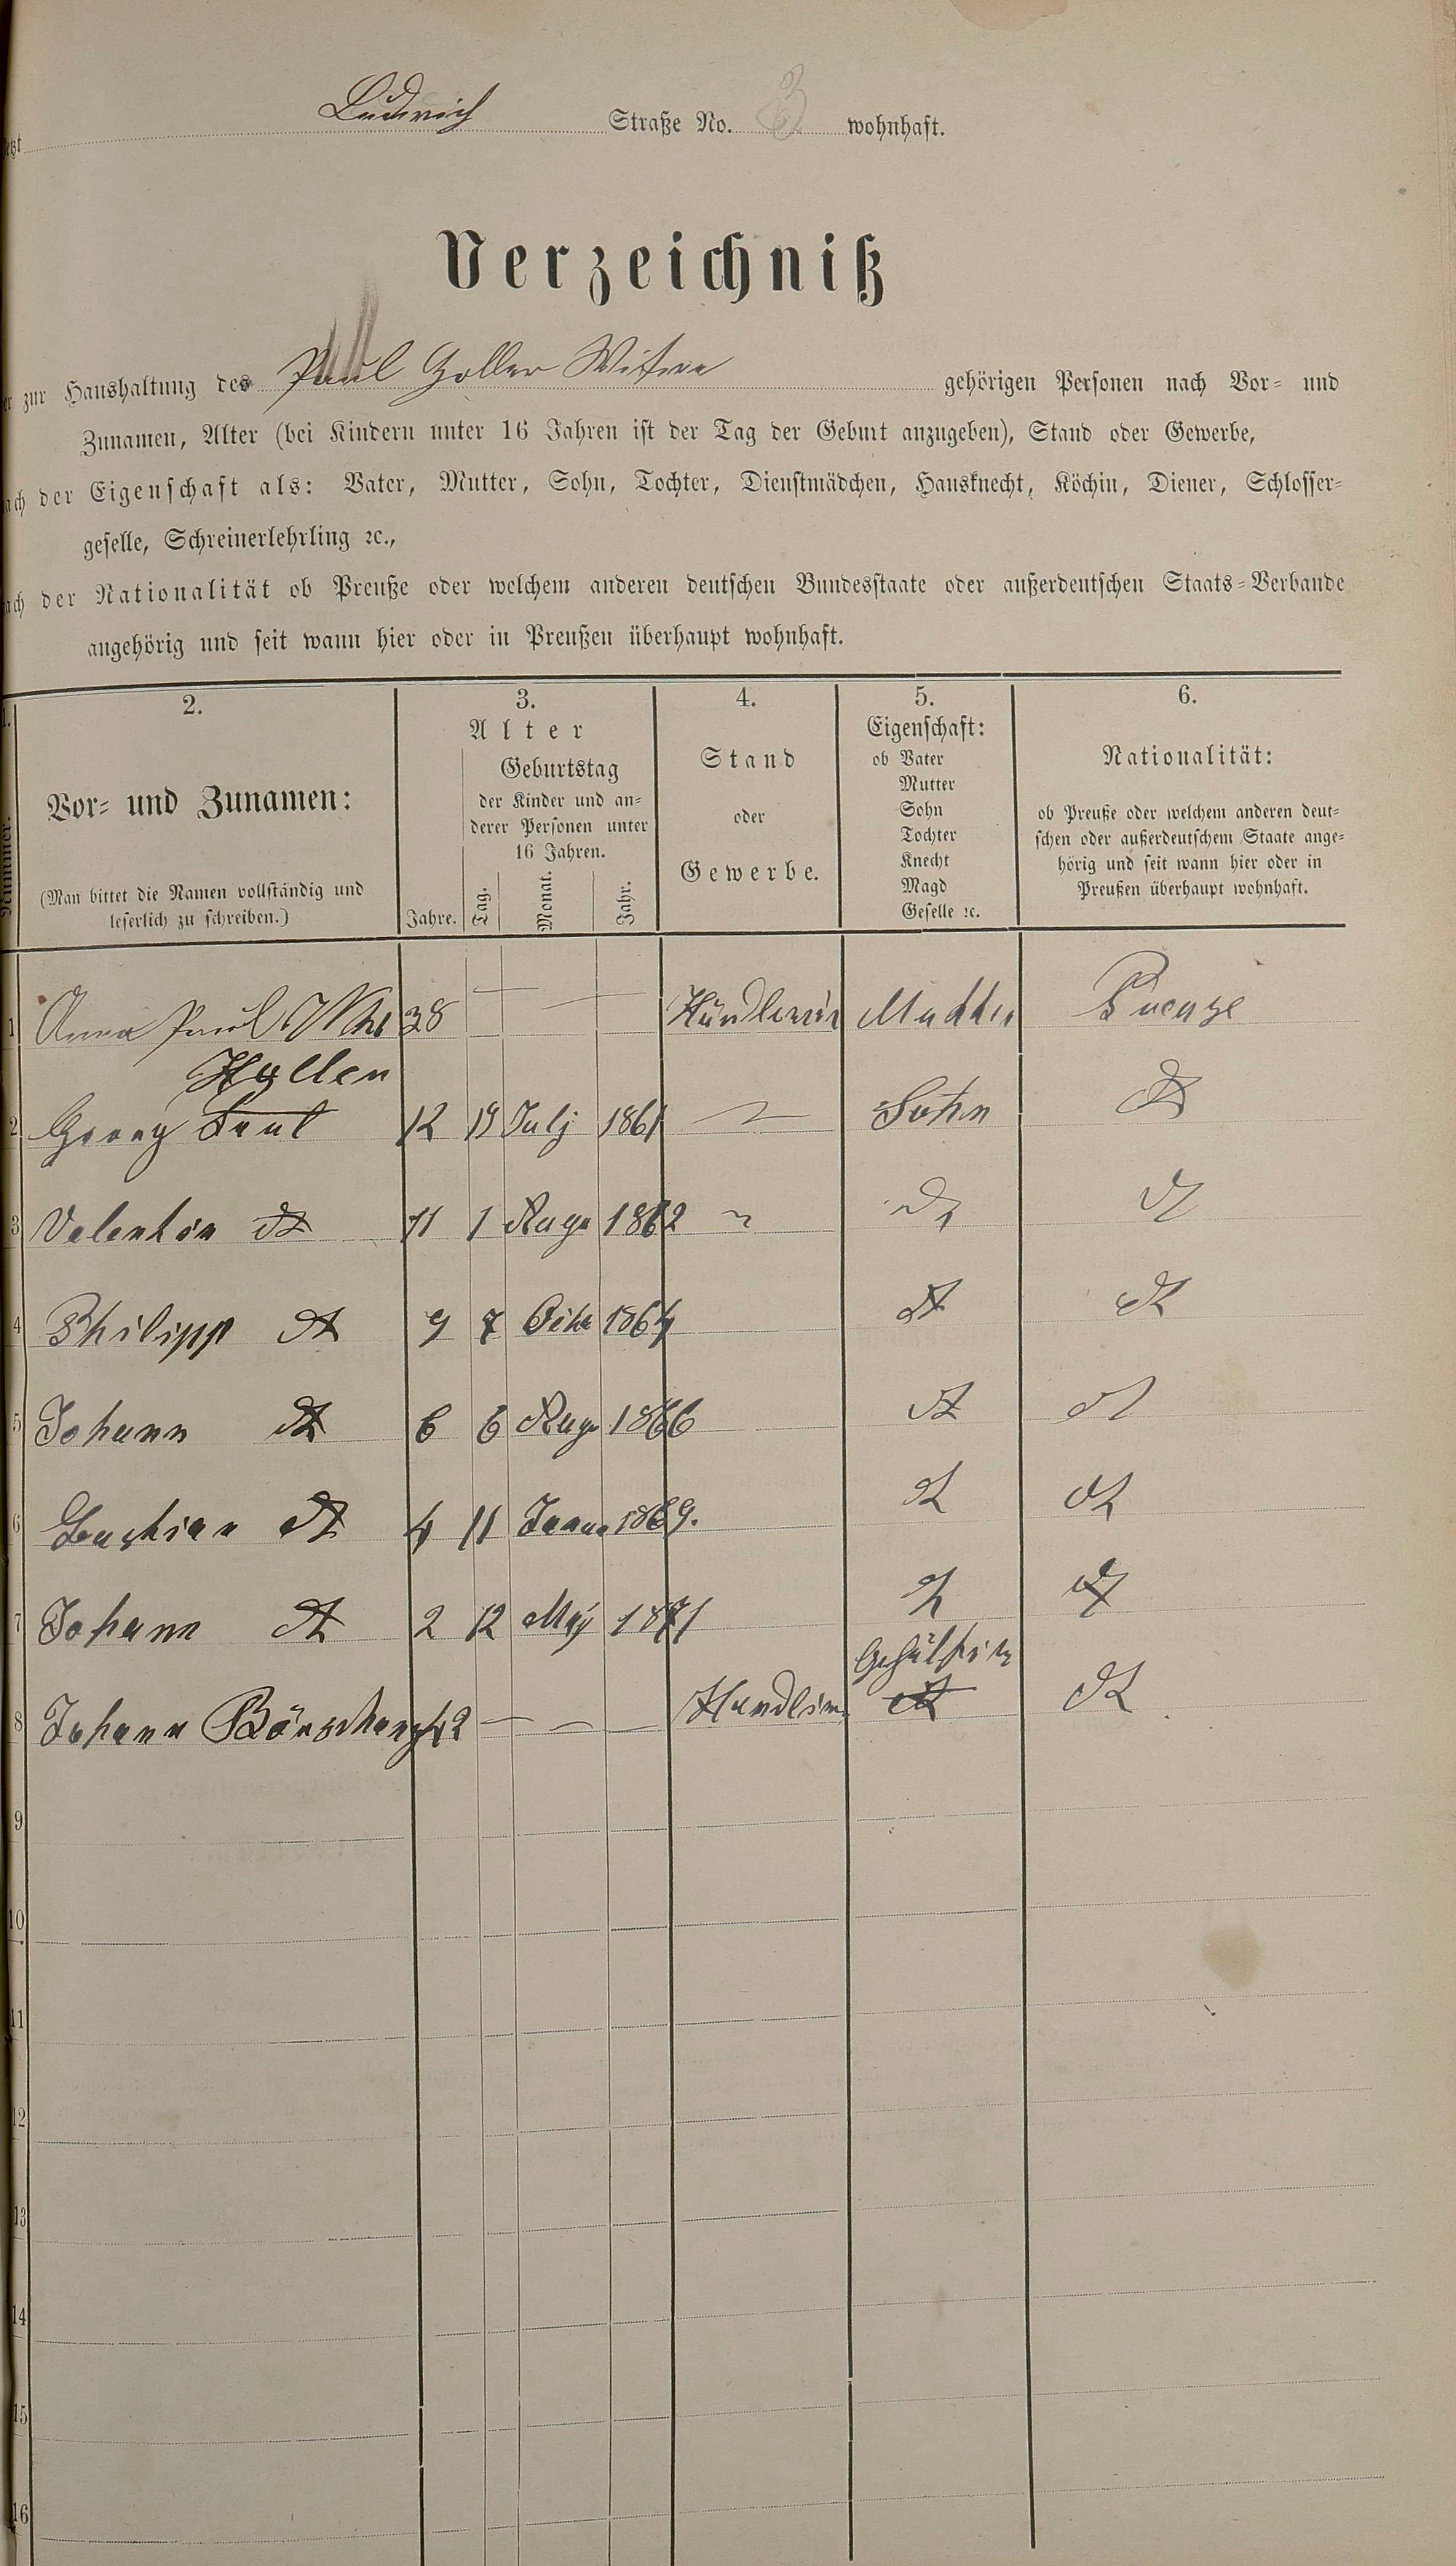 Ludwich Straße No. 3 wohnhaft.
Verzeichniß
zur Haushaltung des Paul Goller Witwe gehörigen Personen nach Vor= und
Zunamen, Alter (bei Kindern unter 16 Jahren ist der Tag der Geburt anzugeben), Stand oder Gewerbe,
der Eigenschaft als: Vater, Mutter, Sohn, Tochter, Dienstmädchen, Hausknecht, Köchin, Diener, Schlosser=
geselle, Schreinerlehrling ꝛc.,
der Nationalität ob Preuße oder welchem anderen deutschen Bundesstaate oder außerdeutschen Staats=Verbande
angehörig und seit wann hier oder in Preußen überhaupt wohnhaft.
2. 3. 4. 5. 6.
Vor= und Zunamen:
(Man bittet die Namen vollständig und
leserlich zu schreiben.)
Alter
Geburtstag
der Kinder und an=
derer Personen unter
16 Jahren.
Jahre. Tag. Monat. Jahr.
Stand
oder
Gewerbe.
Eigenschaft:
ob Vater
Mutter
Sohn
Tochter
Knecht
Magd
Geselle ꝛc.
Nationalität:
ob Preuße oder welchem anderen deut=
schen oder außerdeutschem Staate ange=
hörig und seit wann hier oder in
Preußen überhaupt wohnhaft.
1 Anna Paul 38 — — Händlerin Mutter
2 Georg 12 19 Julj 1861 — Sohn dt
3 Valentin dt 11 1 Augu 1862 dt dt
4 Philipp dt 9 7 1864 dt dt
5 Johann dt 6 6 Augu 1866 dt dt
6 dt 4 11 Janu 1869. dt dt
7 Johann dt 2 12 Maj 1871 dt dt
Gehülfin
8 Johann 42 — — — dt dt
9
10
11
12
13
14
15
16